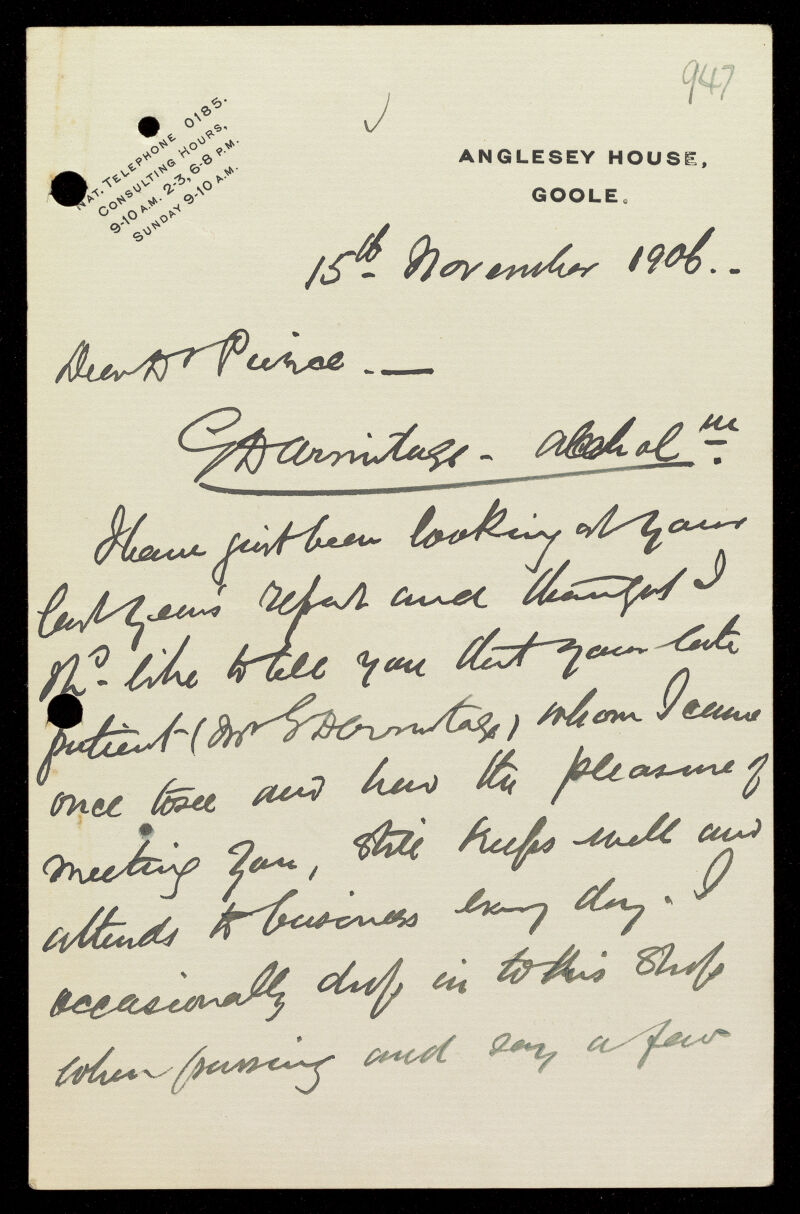 947
NAT. TELEPHONE 0185.
CONSULTING HOURS,
9-10 A.M. 2-3, 6-8 P.M.
SUNDAY 9-10 A.M.
ANGLESEY HOUSE,
GOOLE.
15th November 1906..
Dear Dr Pierce. —
G D Armitage - alcoholm
I have just been looking at your
last years report and thought I
shd. like to tell you that your late
patient (Mr G D Armitage) whom I came
once to see and had the pleasure of
meeting you, still keeps well and
attends to business every day. I
occasionally drop in to his shop
when passing and say a few